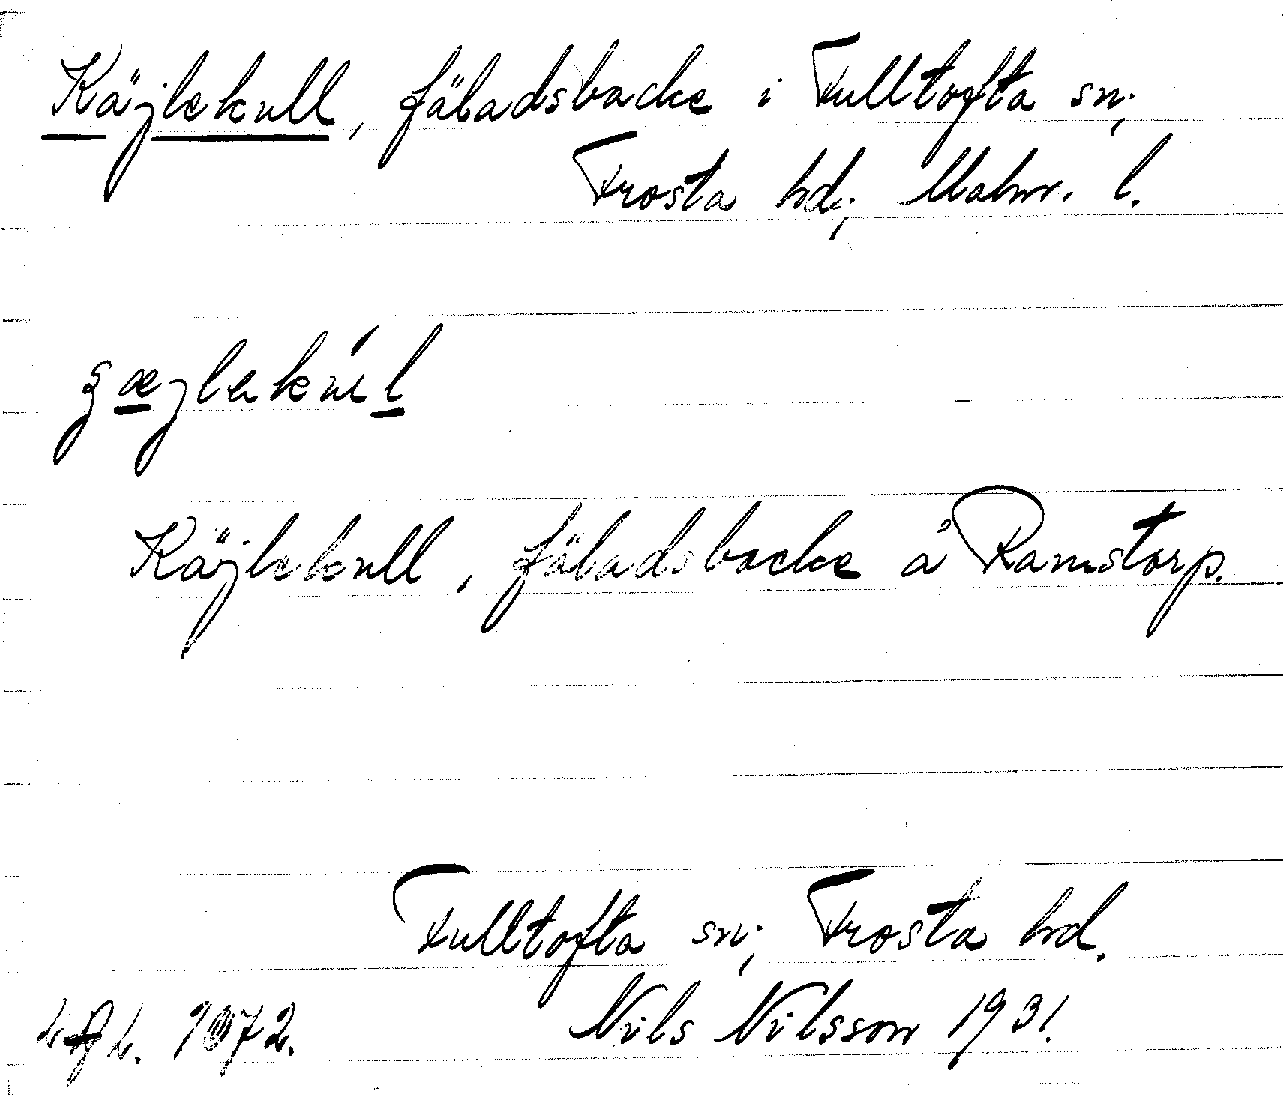 Käjlekull, fäladsbacke i Fulltofta sn;
Frosta hd; Malm. l.
Käjlekull, fäladsbacke å Ramstorp.
Fulltofta sn; Frosta hd.
Nils Nilsson 1931.